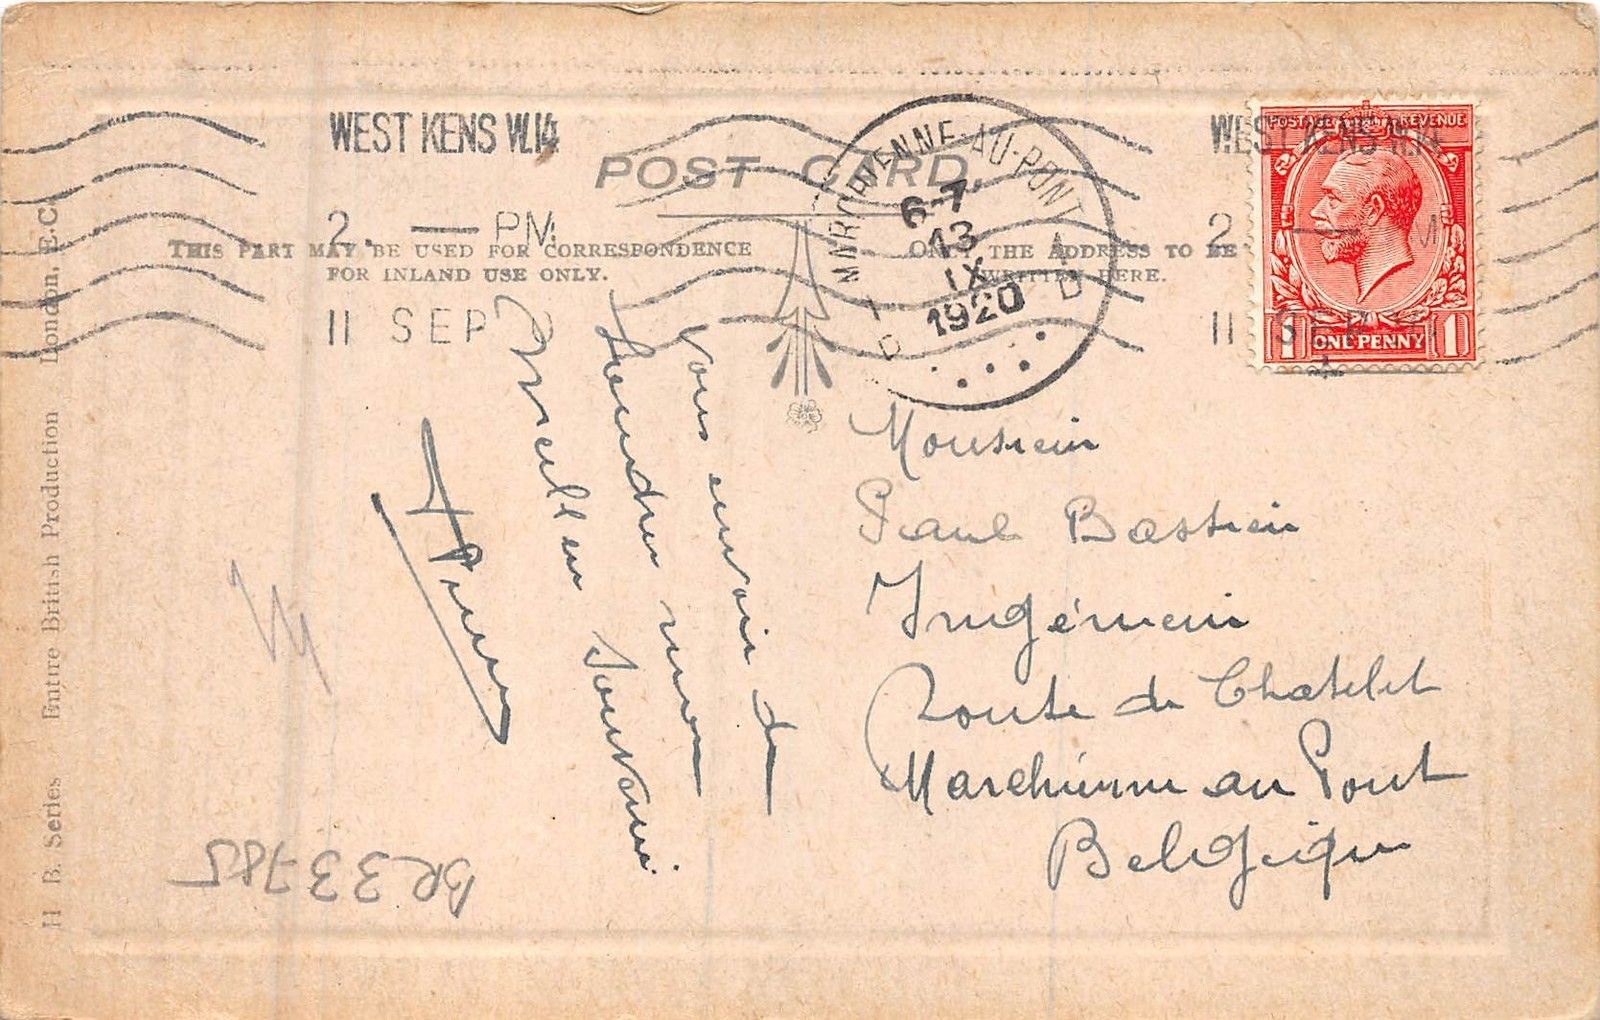 WEST KENS W.14
2. — PM
11 SEP
POST CARD
THIS PART MAY BE USED FOR CORRESPONDENCE
FOR INLAND USE ONLY.
ONLY THE ADDRESS TO BE
WRITTEN HERE.
MARCHIENNE-AU-PONT
6-7
13
IX
1920
WEST KENS W.14
2. — M
11 SEP
POSTAGE REVENUE
1 ONE PENNY 1
Vous envoie de
Londres mon
meilleur souvenir.
Monsieur
Paul Bastien
Ingénieur
Route de Chatelet
Marchienne au Pont
Belgique
H B. Series Entire British Production London, E.C.
BR33785